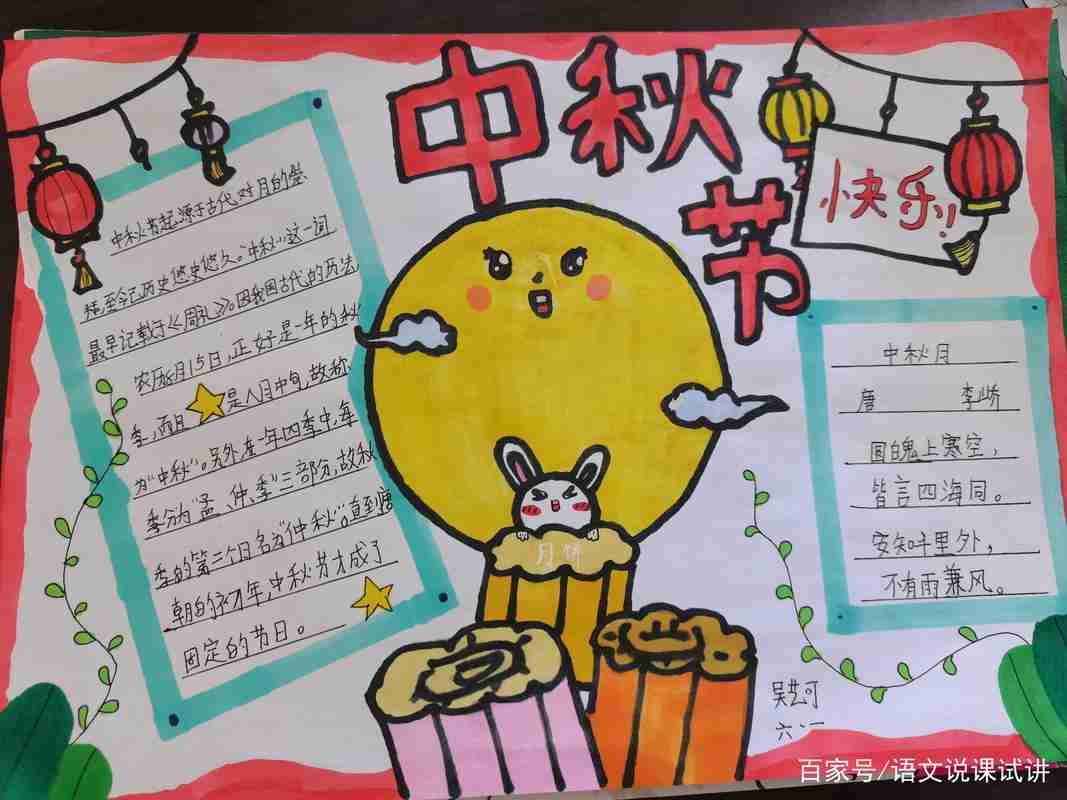 中秋节
快乐!!
中秋节起源于古代对月的崇
至今已历史悠史悠久。“中秋”这一词
最早记载于《周礼》。因我国古代的历法
农历8月15日,正好是一年的秋
季,而且是八月中旬,故称
为“中秋”。另外,在一年四季中,每
季分为“孟、仲、季”三部分,故秋
季的第二个月名为“仲秋”。直至唐
朝的初年,中秋节才成了
固定的节日。
中秋月
唐 李峤
圆魄上寒空,
皆言四海同。
安知千里外,
不有雨兼风。
月饼
吴艺可
六、一
百家号/语文说课试讲